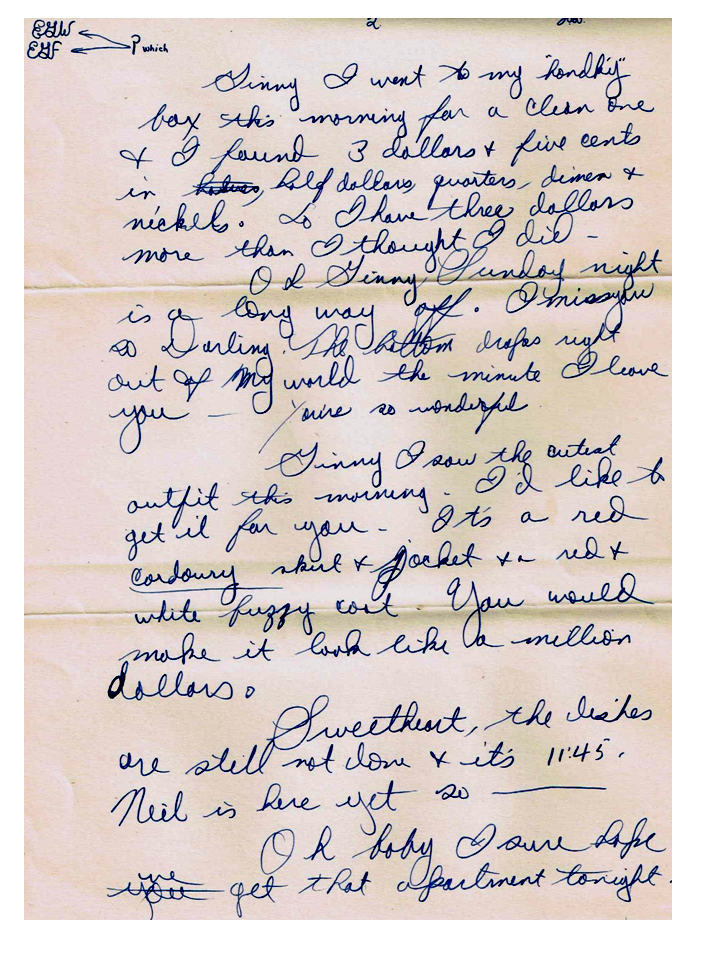 EGW
EGF ? which
2
Ginny I went to my "hondky"
box this morning for a clean one
& I found 3 dollars & five cents
in halves, half dollars, quarters, dimes &
nickels. So I have three dollars
more than I thought I did –
Oh Ginny Sunday night
is a long way off. I miss you
so Darling. The bottom drops right
out of my world the minute I leave
you — You're so wonderful
Ginny I saw the cutest
outfit this morning. I'd like to
get it for you – It's a red
cordoury skirt & jacket & a red &
white fuzzy coat You would
make it look like a million
dollars.
Sweetheart, the dishes
are still not done & it's 11:45.
Neil is here yet so ———
Oh baby I sure hope
you we get that apartment tonight.